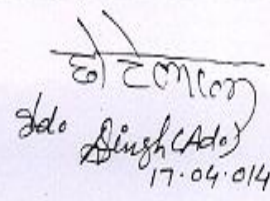 छोटेलाल
Sdo Singh (Ado)
17.04.014